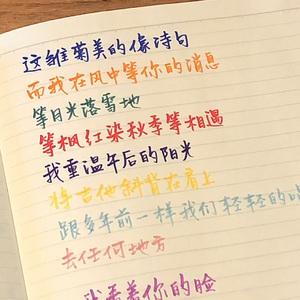 这雏菊美的像诗句
而我在风中等你的消息
等月光落雪地
等枫红染秋季等相遇
我重温午后的阳光
将吉他斜背在肩上
跟多年前一样我们轻轻的唱
去任何地方
我看着你的脸